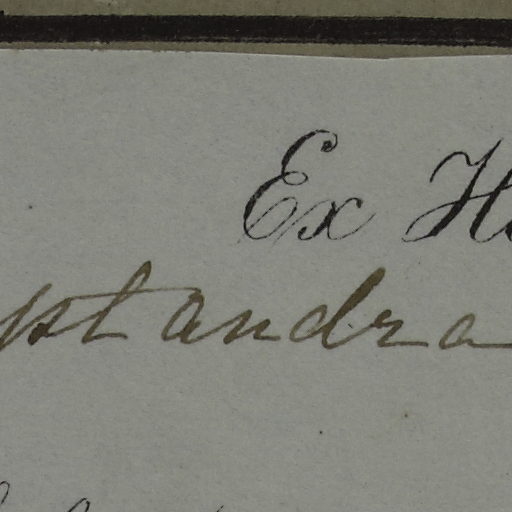 Ex H
ptandra